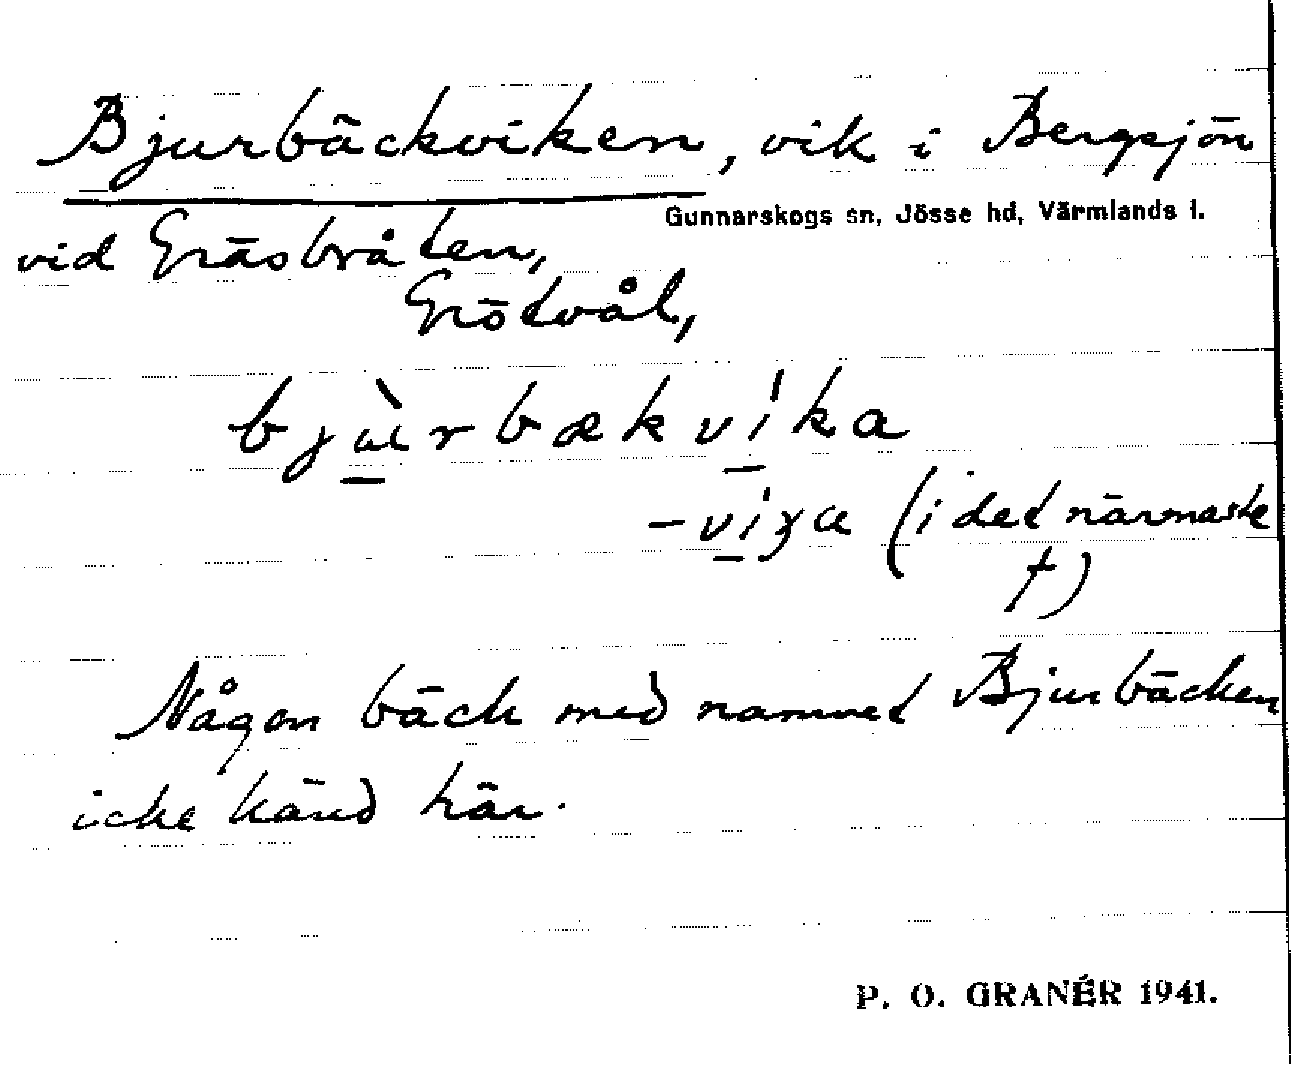 Bjurbäckviken, vik i Bergsjön
Gunnarskogs sn, Jösse hd, Värmlands l.
vid Gräsbråten,
Grötvål,
bjùrbækvíka
-víʒa (i det närmaste
†)
Någon bäck med namnet Bjurbäcken
icke känd här.
P. O. GRANÉR 1941.